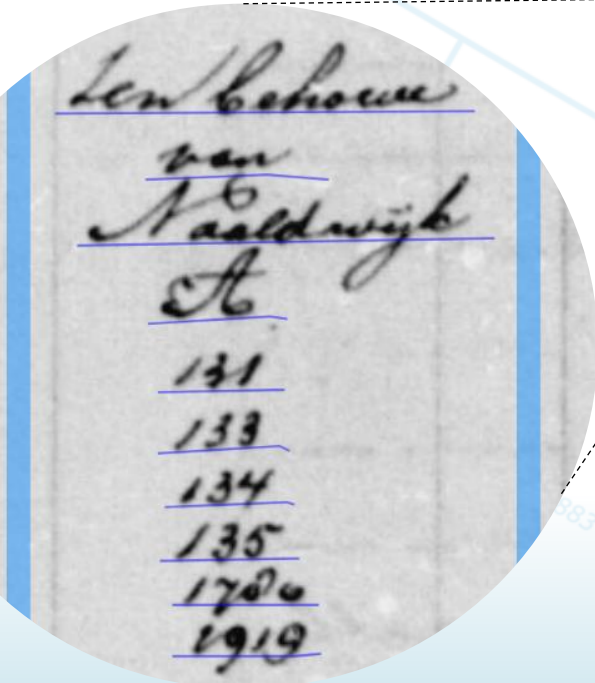 ten behouve
van
Naaldwijk
A
131
133
134
135
1780
1919
883